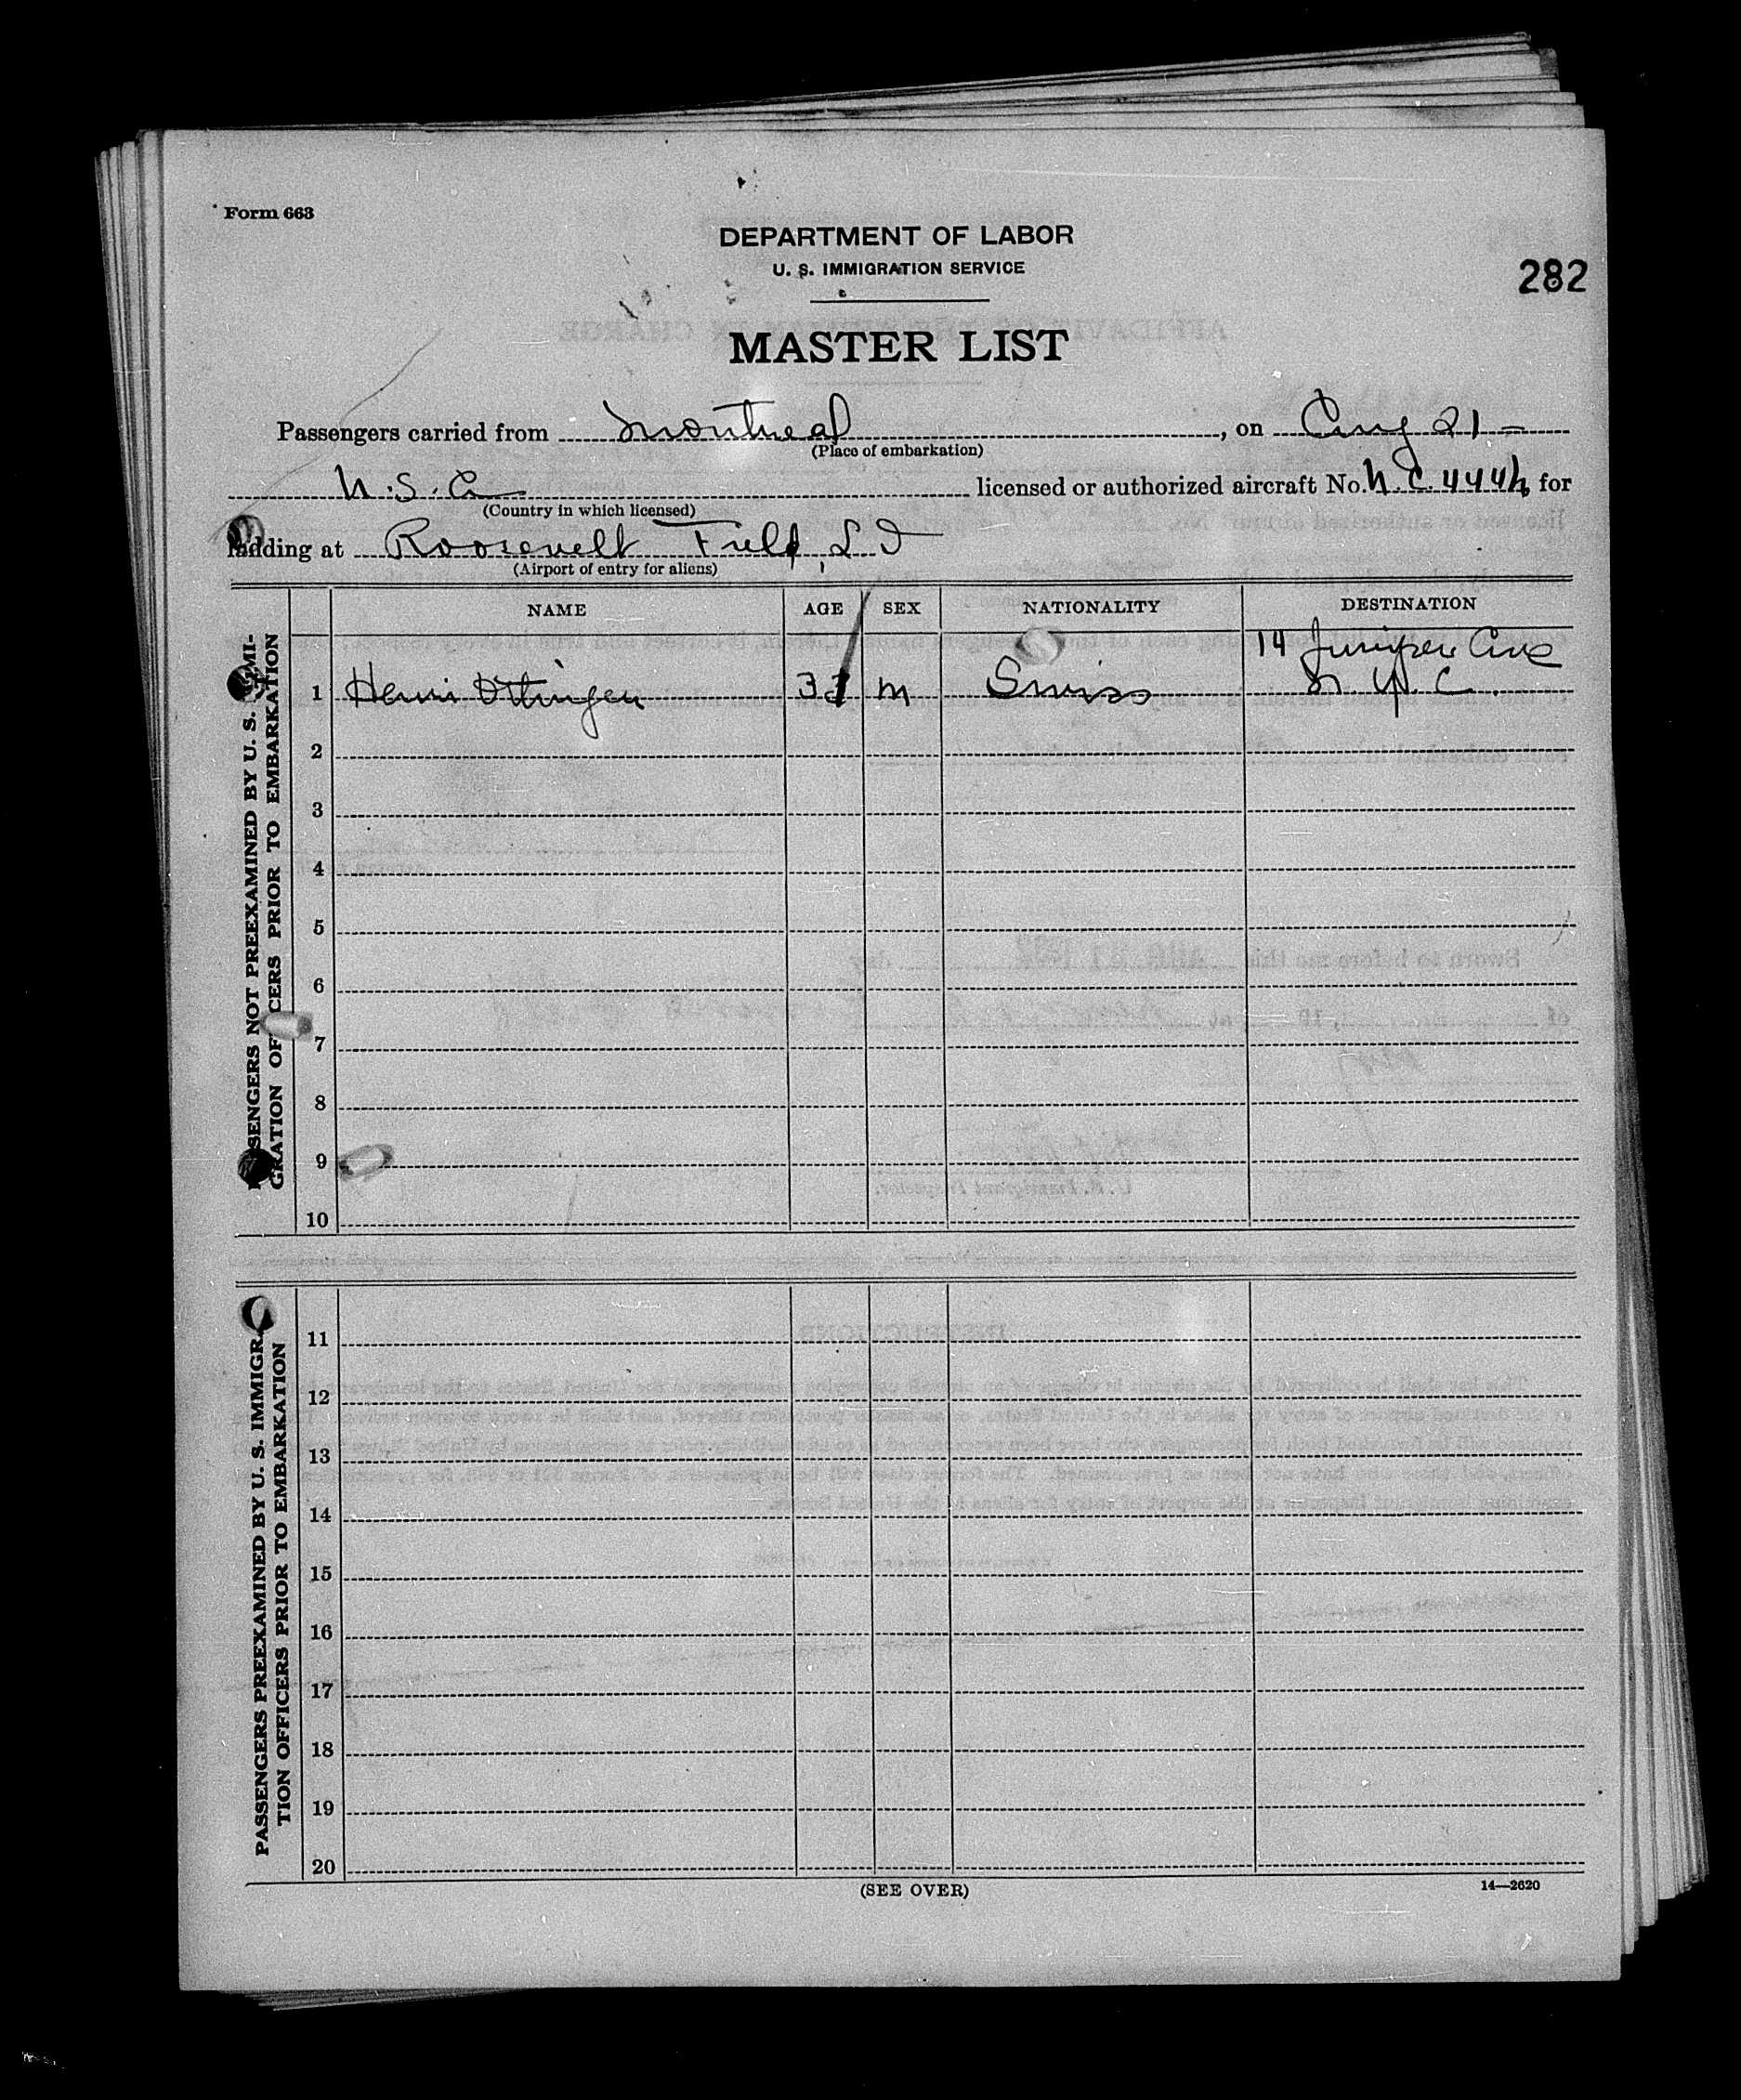 Form 663
DEPARTMENT OF LABOR
U. S. IMMIGRATION SERVICE
282
MASTER LIST
Passengers carried from Montreal, on Aug 21 -
(Place of embarkation)
U.S.A licensed or authorized aircraft No. N.C. 444H, for
(Country in which licensed)
landing at Roosevelt Field, L I
(Airport of entry for aliens)
NAME AGE SEX NATIONALITY DESTINATION
14 Juniper Ave
1 Henri Ottingen M Swiss N.Y.C.
2
3
4
5
6
7
8
9
10
SENGERS NOT PREEXAMINED BY U. S. MI-
GRATION OF CERS PRIOR TO EMBARKATION
11
12
13
14
15
16
17
18
19
20
PASSENGERS PREEXAMINED BY U. S. IMMIGRA
TION OFFICERS PRIOR TO EMBARKATION
(SEE OVER)
14—2620